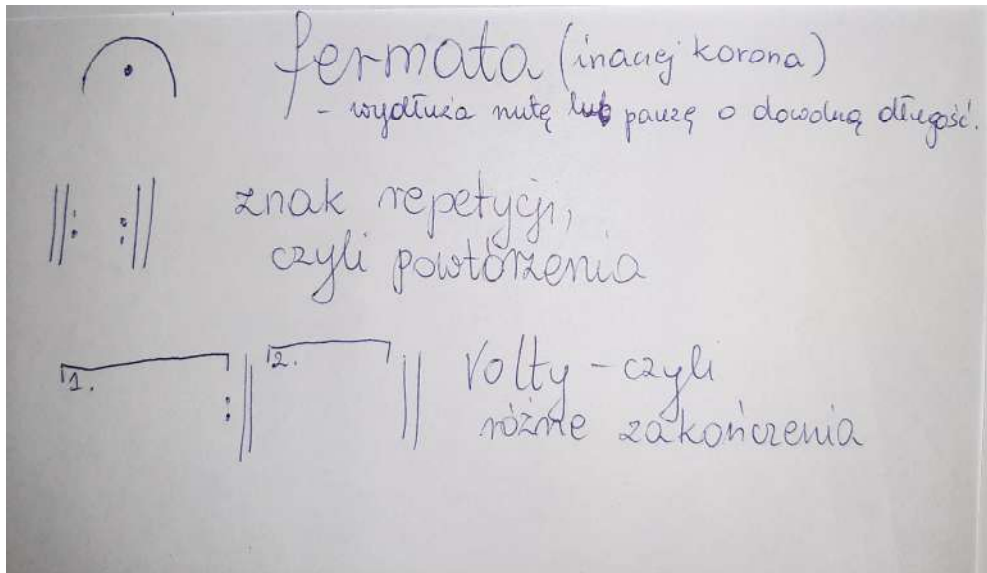 fermata (inaczej korona)
- wydłuża nutę lub pauzę o dowolną długość.
znak repetycji,
czyli powtórzenia
1.
2.
Volty - czyli
różne zakończenia